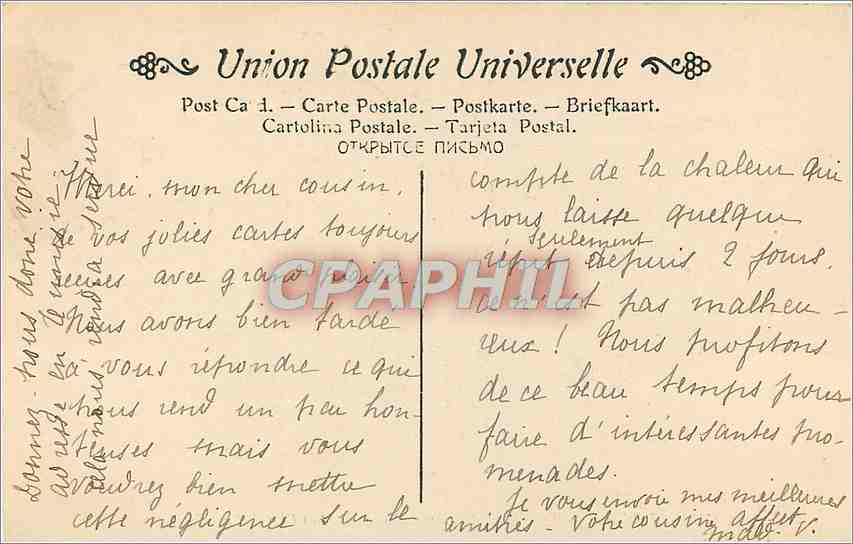 Union Postale Universelle
Post Ca d. — Carte Postale. — Postkarte. — Briefkaart.
Cartolina Postale. — Tarjeta Postal.
ОТКРЫТОЕ ПИСЬМО
Merci, mon cher cousin,
de vos jolies cartes toujours
reçues avec grand plaisir.
Nous avons bien tardé
à vous répondre ce qui
nous rend un peu hon-
teuses mais vous
voudrez bien mettre
cette négligence sur le
compte de la chaleur qui
nous laisse quelque
seulement
répit depuis 2 jours.
ce n'est pas malheu-
reux ! Nous profitons
de ce beau temps pour
faire d'intéressantes pro-
menades.
Je vous envoie mes meilleures
amitiés - Votre cousin affect
V.
Donnez-nous donc votre
adresse en
cela nous rendra
CPAPHIL